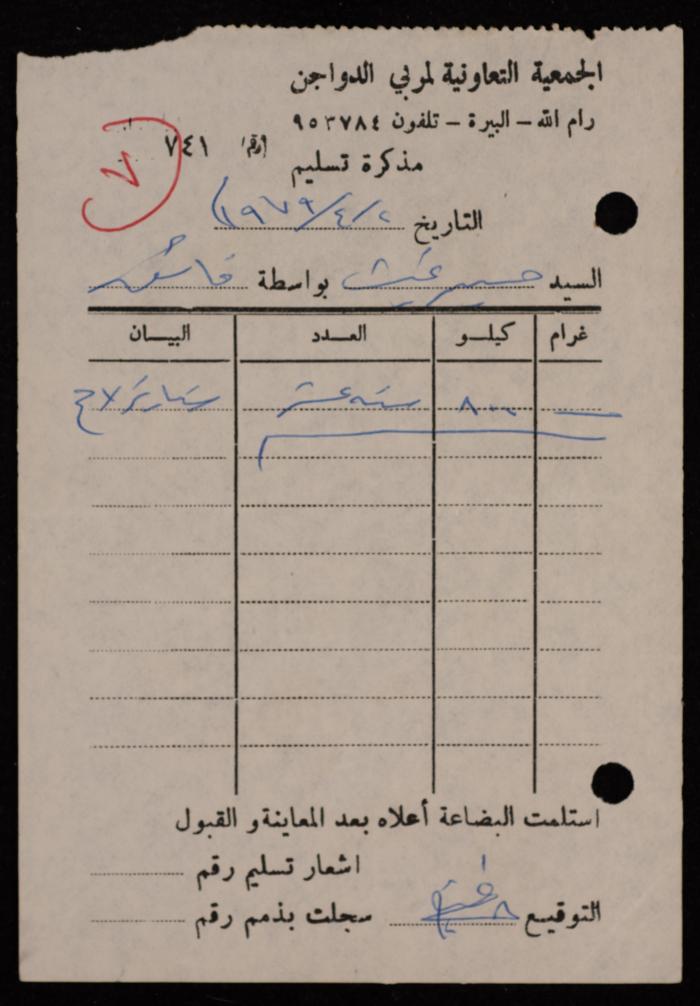 الجمعية التعاونية لمربي الدواجن
رام الله - البيرة - تلفون ٩٥٣٧٨٤
رقم ٧٤١
٧
مذكرة تسليم
التاريخ ٢/٤/١٩٧٩
السيد بواسطة
غرام كيلـو العـدد البيـان
٨٠٠ سته عشر
استلمت البضاعة أعلاه بعد المعاينة و القبول
اشعار تسليم رقم
التوقيع سجلت بذمم رقم